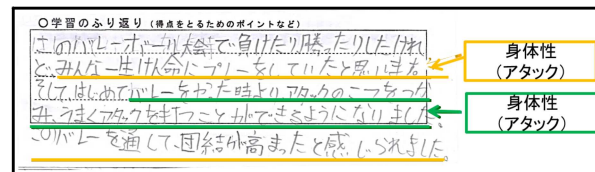 ○学習のふり返り（得点をとるためのポイントなど）
このバレーボール大会で負けたり勝ったりしたけれ
ど、みんな一生けん命にプレーをしていたと思います。
そして、はじめてバレーをやった時よりアタックのこつをつか
み、うまくアタックを打つことができるようになりました。
このバレーを通して、団結が高まったと感じられました。
身体性
（アタック）
身体性
（アタック）